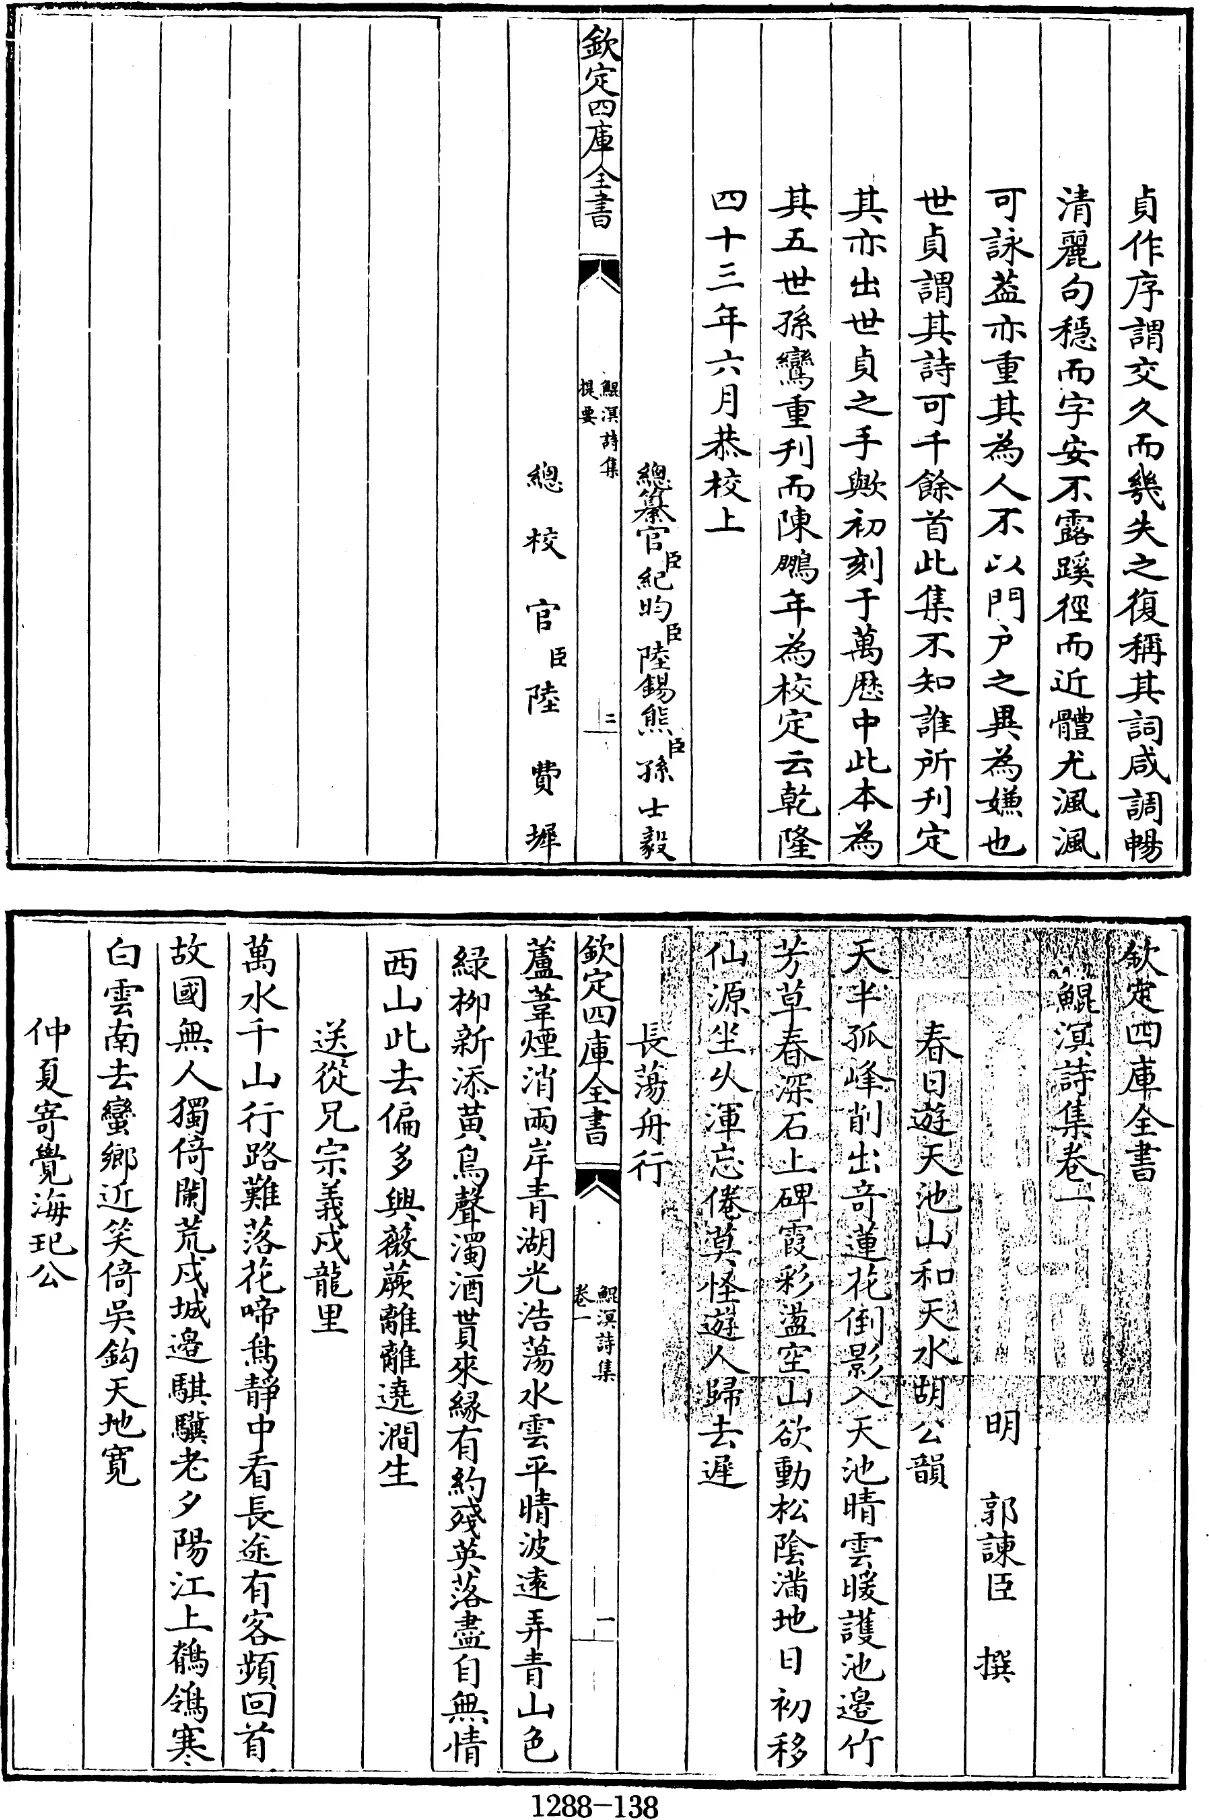 貞作序謂交久而幾失之復稱其詞咸調暢
清麗句穩而字安不露蹊徑而近體尤渢渢
可詠葢亦重其為人不以門户之異為嫌也
世貞謂其詩可千餘首此集不知誰所刋定
其亦出世貞之手歟初刻于萬厯中此本為
其五世孫鸞重刋而陳鵬年為校定云乾隆
四十三年六月恭校上
總纂官臣紀昀臣陸錫熊臣孫士毅
欽定四庫全書
鯤溟詩集
提要
二
總校官臣陸費墀
欽定四庫全書
鯤溟詩集卷一
明 郭諫臣 撰
春日遊天池山和天水胡公韻
天半孤峰削出竒蓮花倒影入天池晴雲暖護池邉竹
芳草春深石上碑霞彩盪空山欲動松陰滿地日初移
仙源坐乆渾忘倦莫怪遊人歸去遲
長蕩舟行
蘆葦煙消兩岸青湖光浩蕩水雲平晴波逺弄青山色
欽定四庫全書
鯤溟詩集
卷一
一
緑柳新添黃鳥聲濁酒貰來縁有約殘英落盡自無情
西山此去偏多興薇蕨離離遶澗生
送從兄宗義戍龍里
萬水千山行路難落花啼鳥靜中看長途有客頻回首
故國無人獨倚闌荒戍城邉騏驥老夕陽江上鶺鴒寒
白雲南去蠻鄉近笑倚吳鈎天地寛
仲夏寄覺海玘公
1288-138